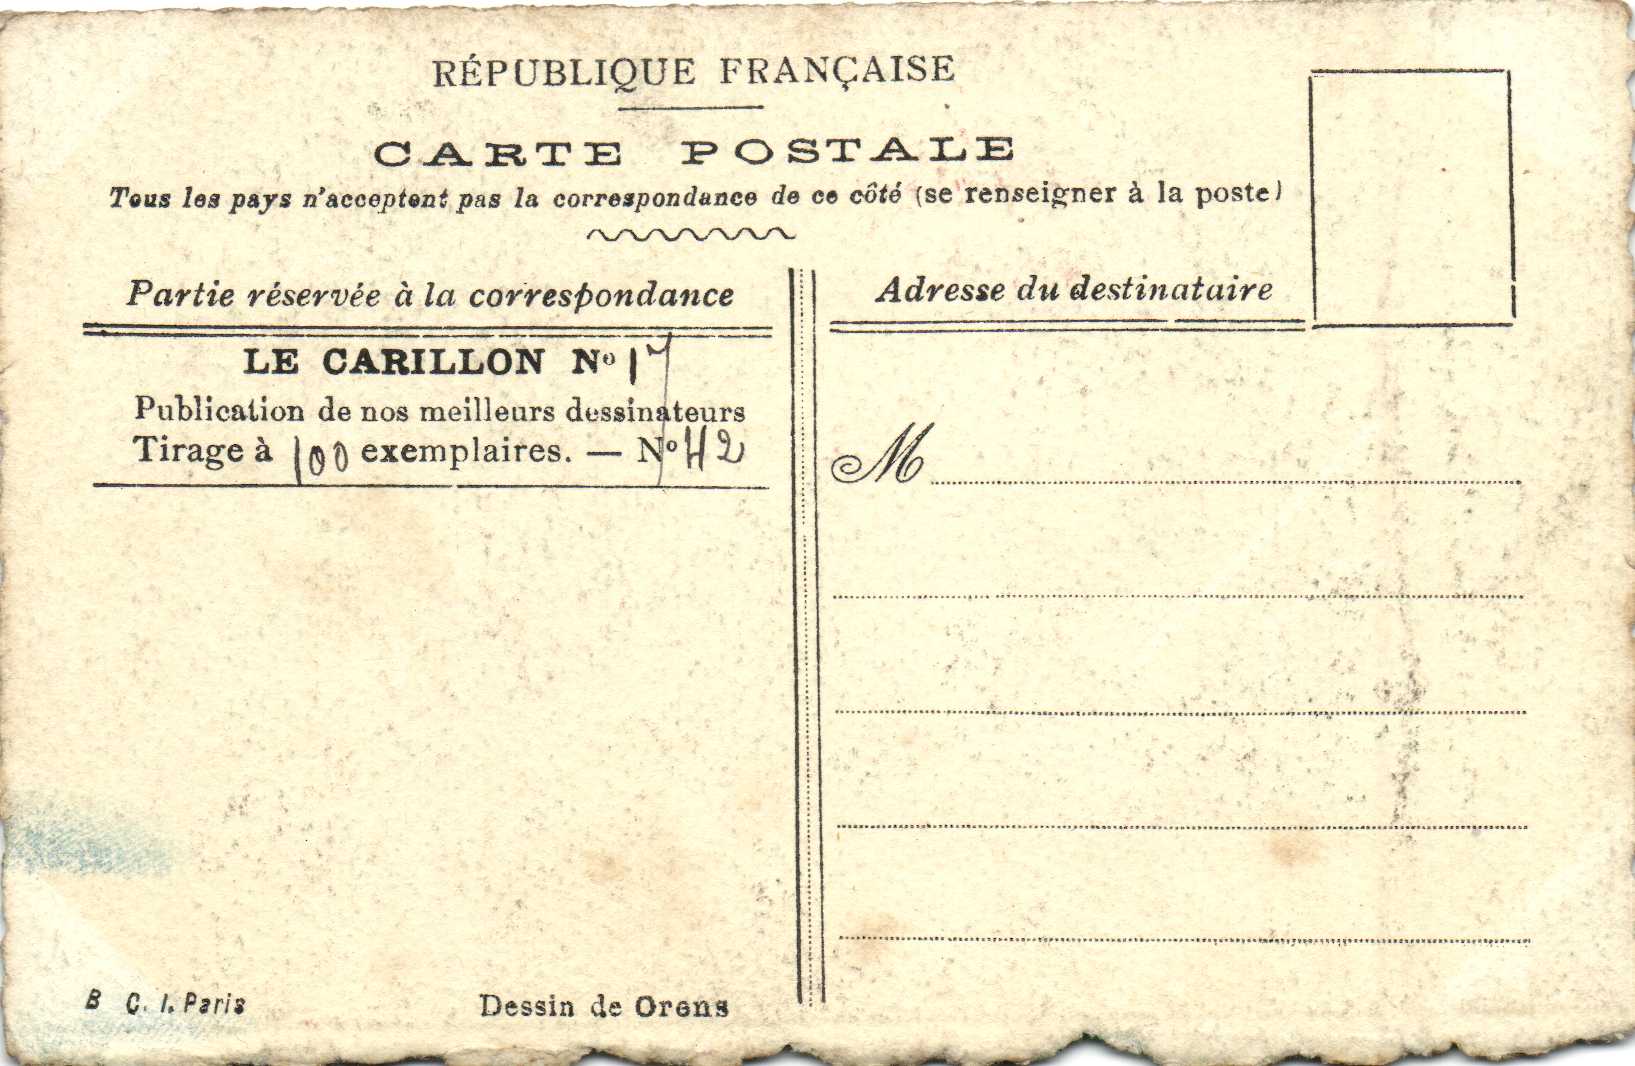 RÉPUBLIQUE FRANÇAISE
CARTE POSTALE
Tous les pays n'acceptent pas la correspondance de ce côté (se renseigner à la poste)
Partie réservée à la correspondance
LE CARILLON No 17
Publication de nos meilleurs dessinateurs
Tirage à 100 exemplaires. — No 42
B C. I. Paris
Dessin de Orens
Adresse du destinataire
M